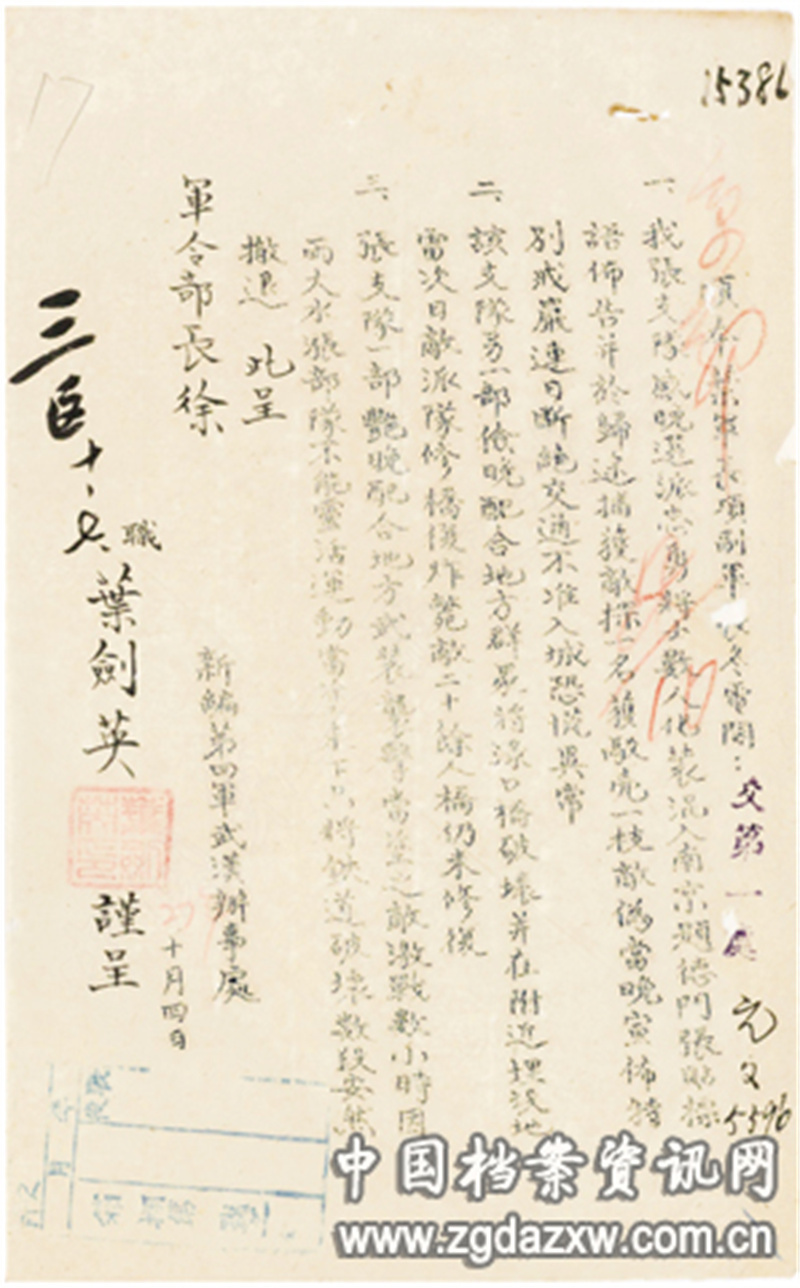 15386
頃奉葉軍長項副軍長冬電開：
一、我張支隊感晚選派忠勇將士數人化裝混入南京麗德門張貼標
語佈告并於歸途捕獲敵探一名獲敵壳一枝敵偽當晚宣佈特
別戒嚴連日断絕交通不准入城恐慌異常
二、該支隊另一部儉晚配合地方群眾將淥口橋破壞并在附近埋設地
雷次日敵派隊修橋復炸斃敵二十餘人橋仍未修復
三、張支隊一部艷晚配合地方武裝襲擊當塗之敵激戰數小時因
雨大水漲部隊不能靈活運動當 將鉄道破壞數段安然
撤退 此呈
軍令部長徐
新編第四軍武漢辦事處
職 葉劍英 謹呈
27 十月四日
交第一處
5596
17
中国档案资讯网
www.zgdazxw.com.cn